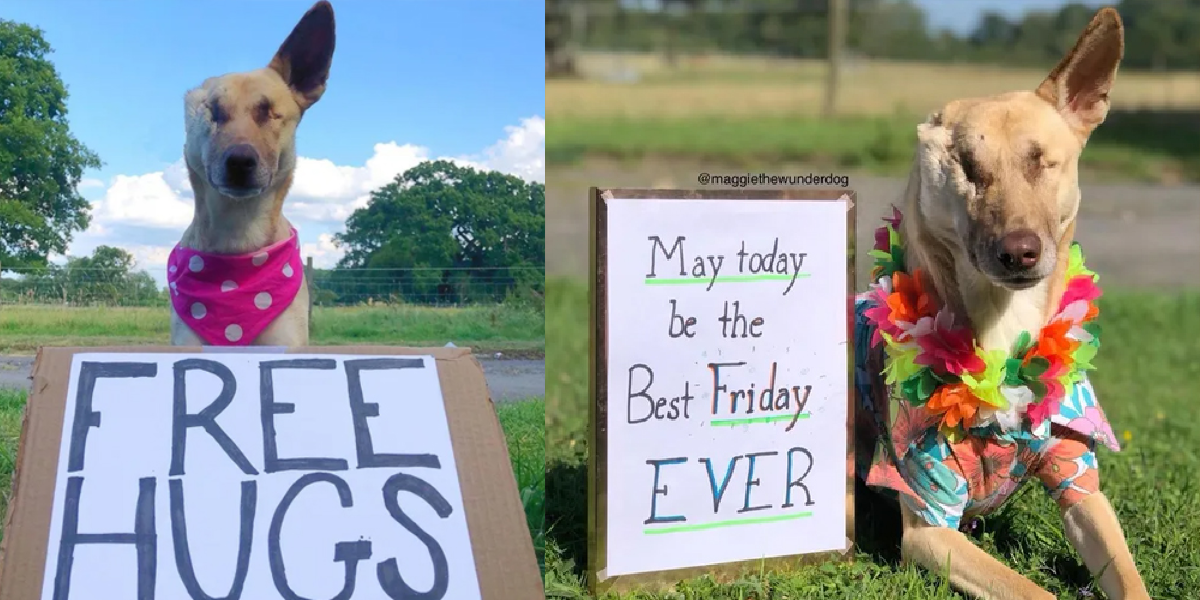 FREE
HUGS
@maggiethewunderdog
May today
be the
Best Friday
EVER